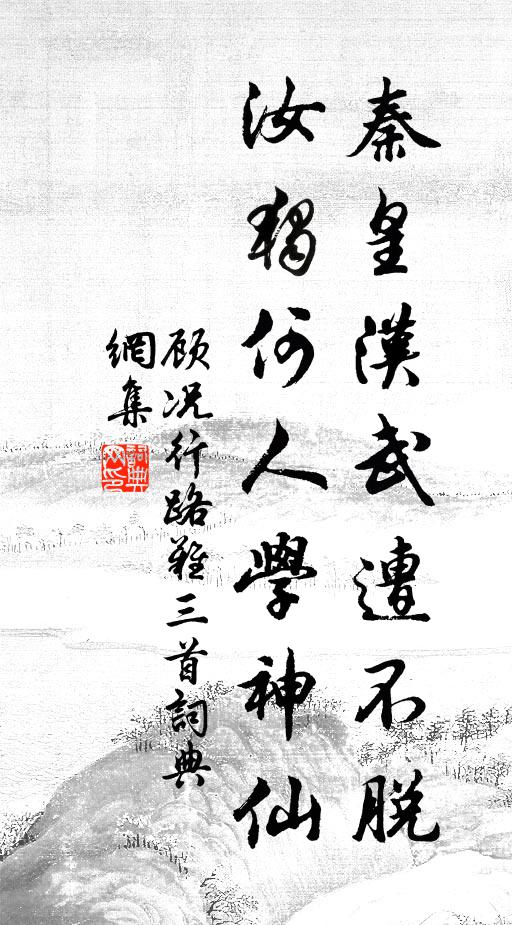 秦皇漢武遭不脫
汝獨何人學神仙
顾况行路難三首詞典
網集
詞典網印